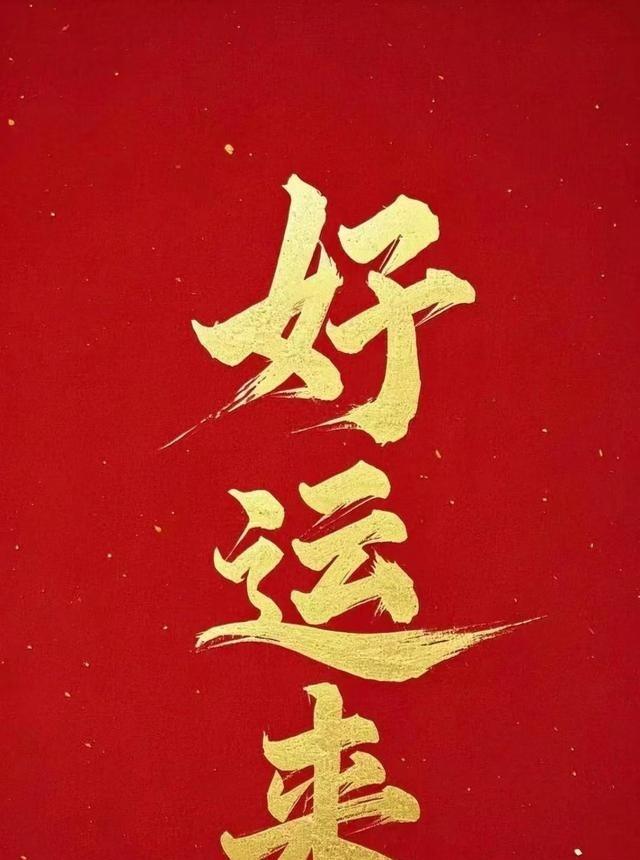 好
运
来